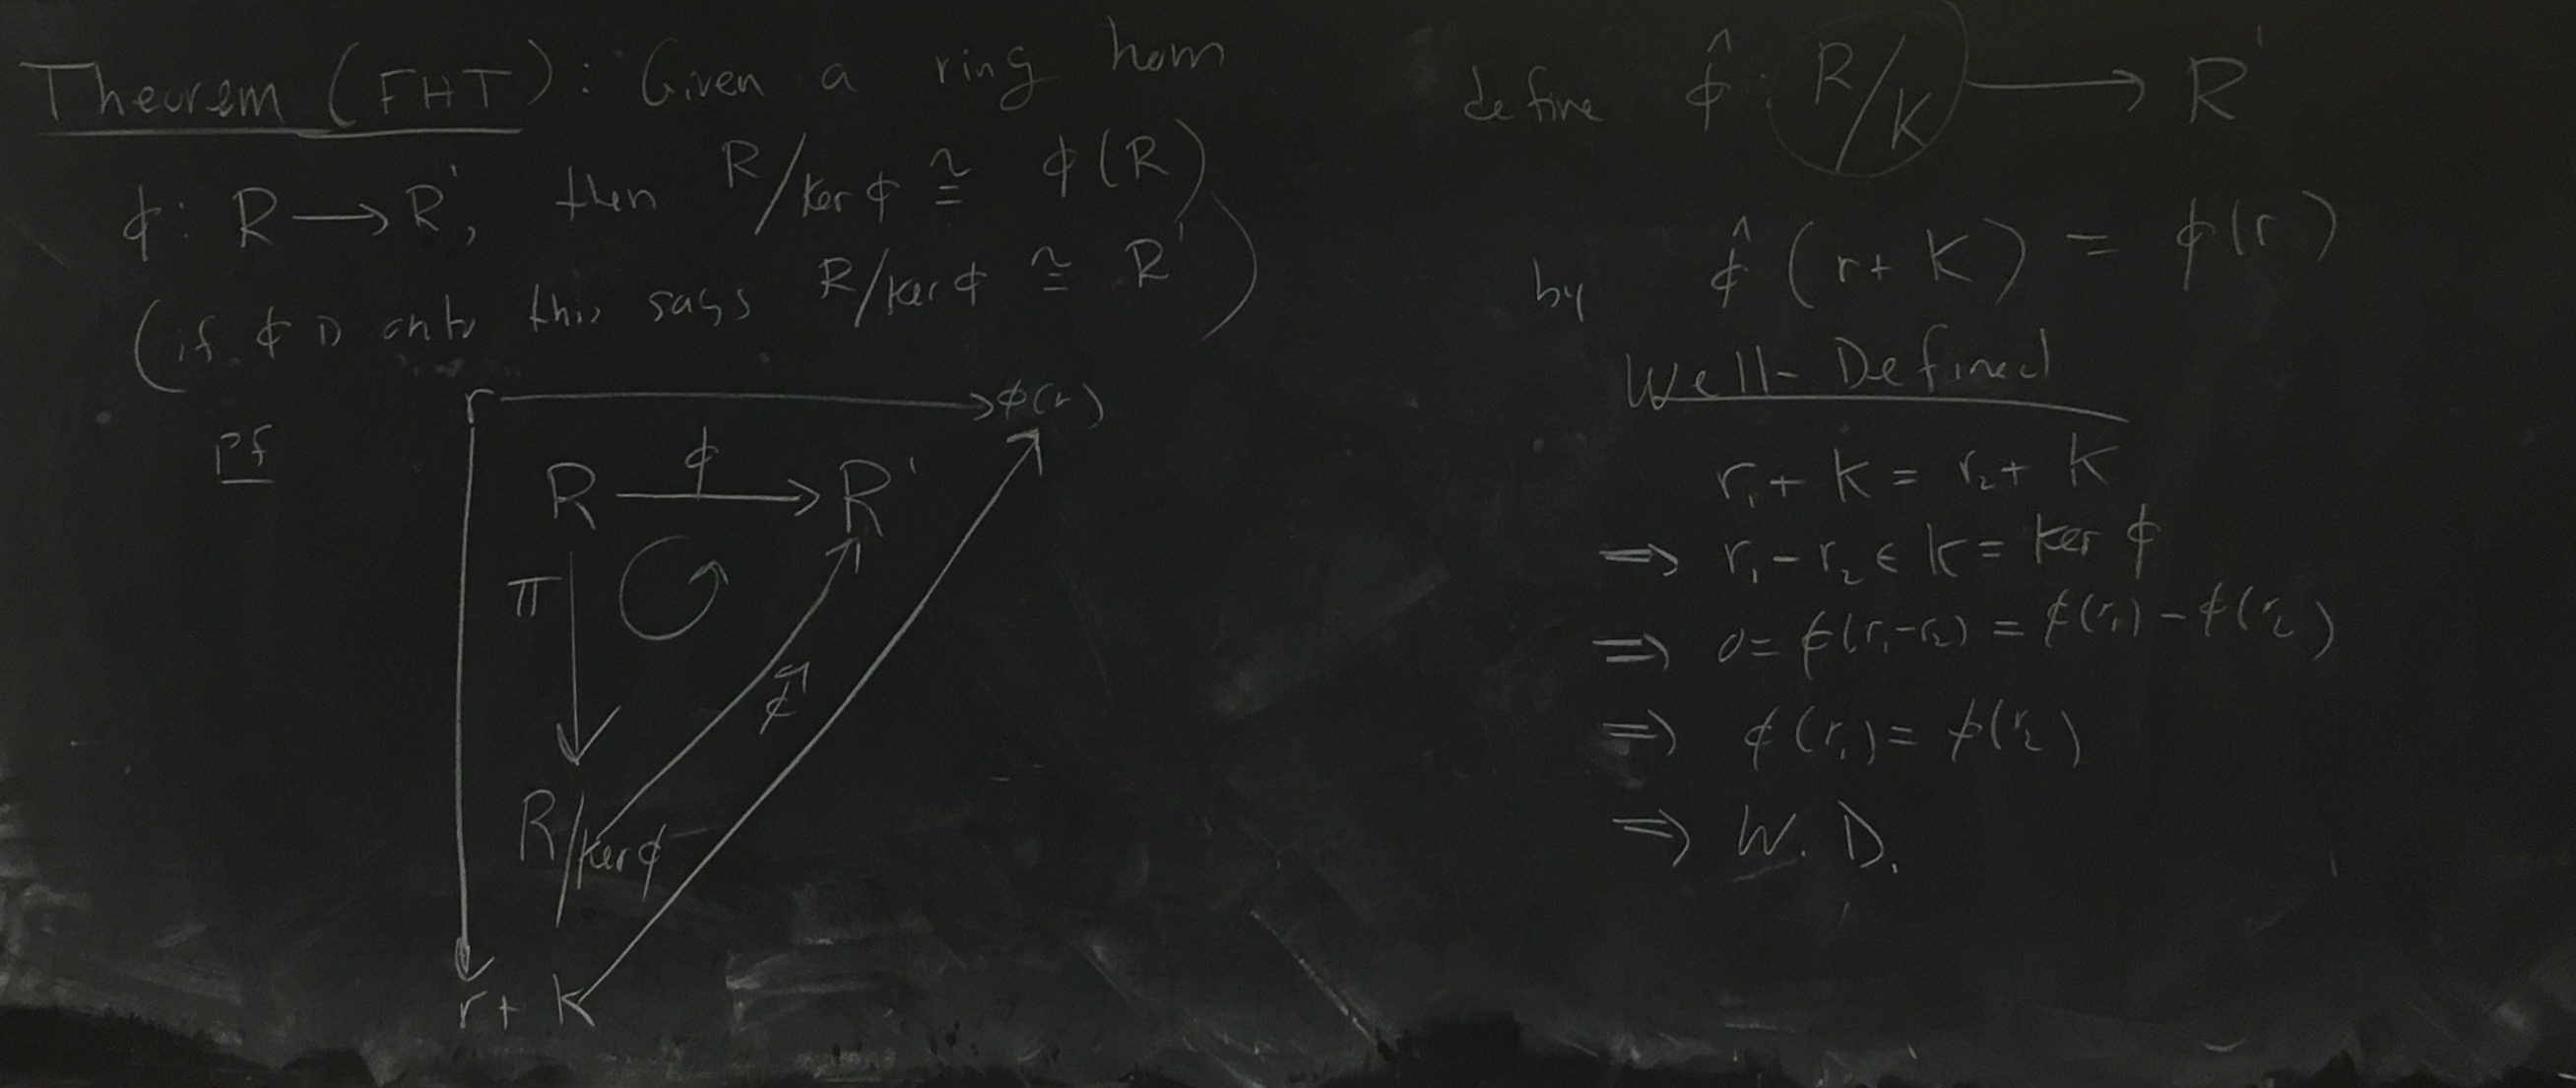 Theorem (FHT): Given a ring hom
ϕ: R → R', then R/ker ϕ ≅ ϕ(R)
(if ϕ is onto this says R/ker ϕ ≅ R')
Pf
r → ϕ(r)
R ϕ → R'
π
ϕ̂
R/ker ϕ
r + K
define ϕ̂ : R/K → R'
by ϕ̂ (r + K) = ϕ(r)
Well-Defined
r₁ + K = r₂ + K
⇒ r₁ - r₂ ∈ K = ker ϕ
⇒ 0 = ϕ(r₁-r₂) = ϕ(r₁) - ϕ(r₂)
⇒ ϕ(r₁) = ϕ(r₂)
⇒ W. D.